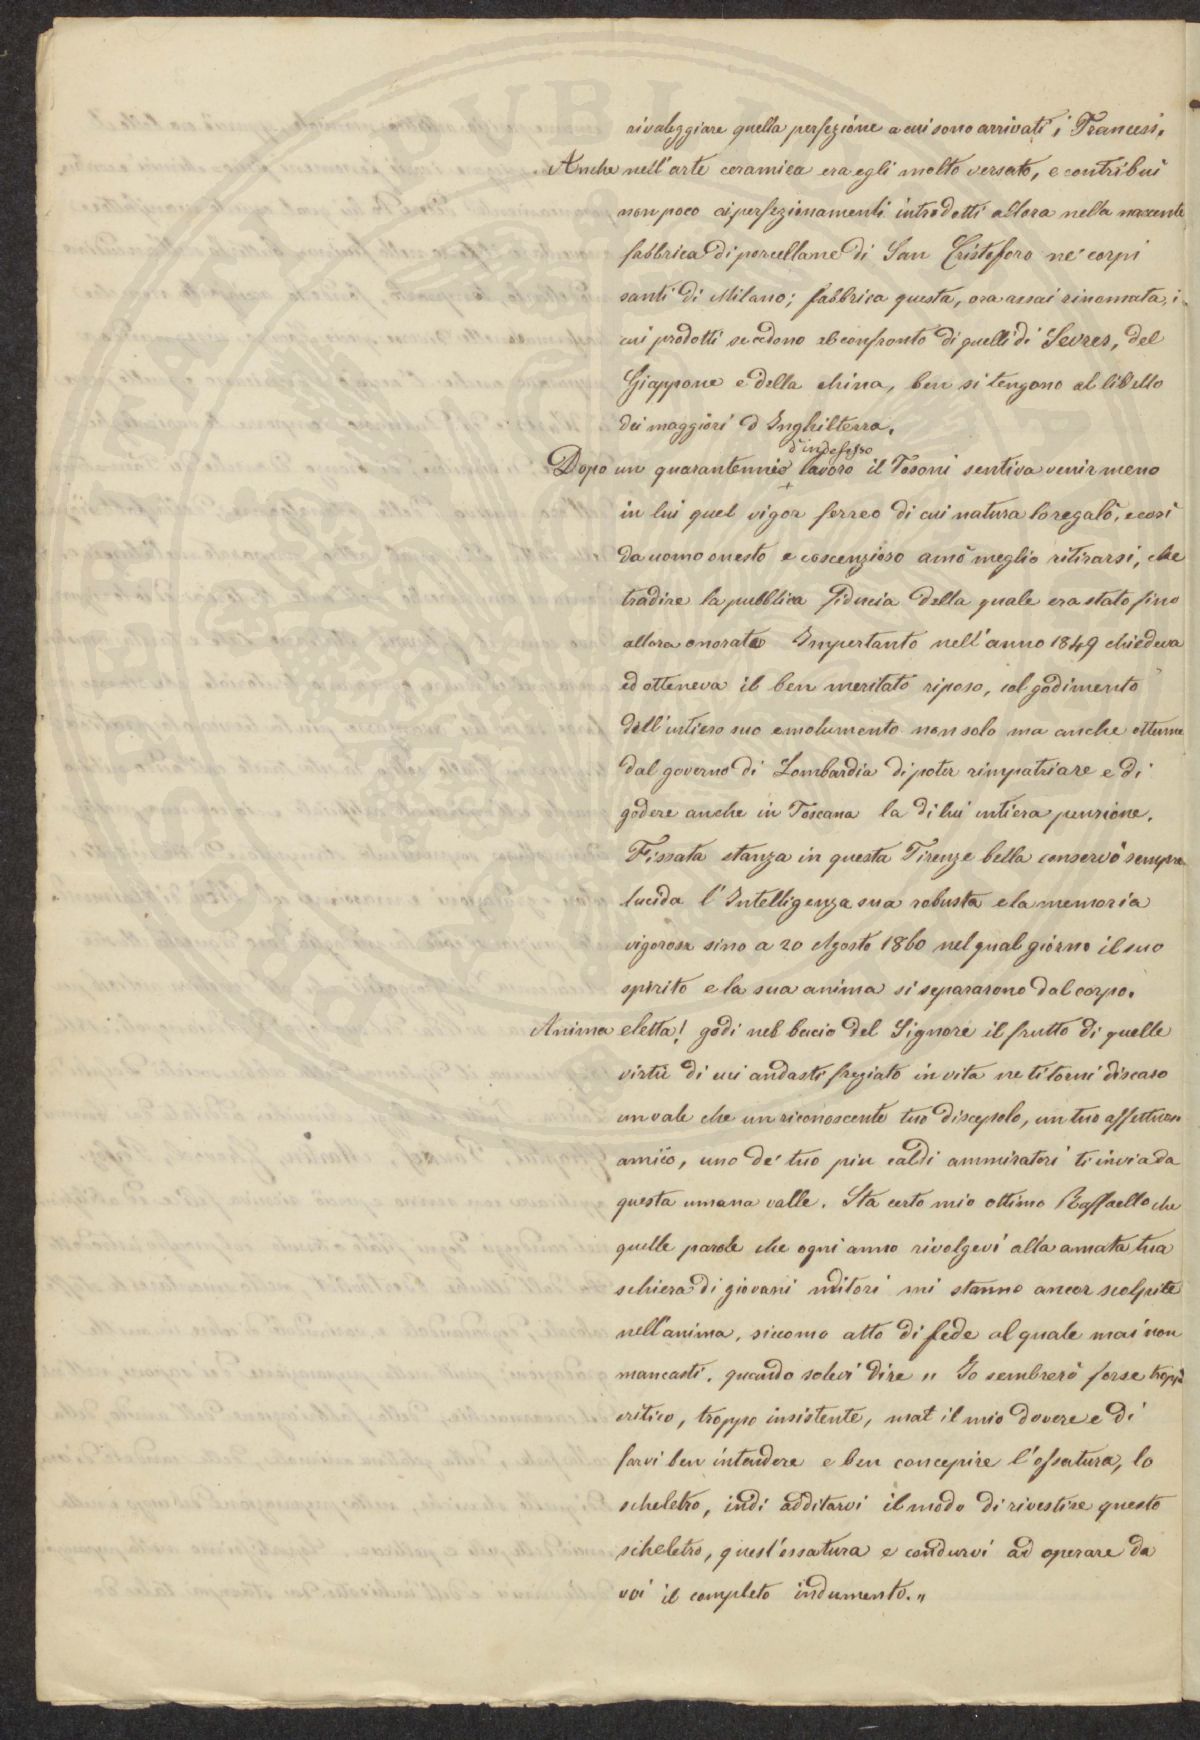 rivaleggiare quella perfezióne a cui sono arrivati i Francesi.
Anche nell'arte ceramica era egli molto versato, e contribuì
non poco ai perfezionamenti introdotti allora nella nascente
fabbrica di porcellane di San Cristoforo ne' corpi
santi di Milano; fabbrica questa, ora assai rinomata, i
cui prodotti se cedono al confronto di quelli di Sevres, del
Giappone e della china, ben si tengono al libello
dei maggiori d'Inghilterra.
d'indefesso
Dopo un quarantennio lavoro il Tosoni sentiva venir meno
in lui quel vigor ferreo di cui natura lo regalò, e così
da uomo onesto e coscenzioso amò meglio ritirarsi, che
tradire la pubblica fiducia della quale era stato fino
allora onorato Impertanto nell'anno 1849 chiedeva
ed otteneva il ben meritato riposo, col godimento
dell'intiero suo emolumento non solo ma anche ottenne
dal governo di Lombardia di poter rimpatriare e di
godere anche in Toscana la di lui intiera pensione.
Fissata stanza in questa Firenze bella conservò sempre
lucida l'Intelligenza sua robusta e la memoria
vigorosa sino a 20 Agosto 1860 nel qual giorno il suo
spirito e la sua anima si separarono dal corpo.
Anima eletta! godi nel bacio del Signore il frutto di quelle
virtù di cui andasti fregiato in vita ne ti torni discaro
un vale che un riconoscente tuo discepolo, un tuo affettuoso
amico, uno de' tuo piu caldi ammiratori ti invia da
questa umana valle. Sta certo mio ottimo Raffaello che
quelle parole che ogni anno rivolgevi alla amata tua
schiera di giovani uditori mi stanno ancor scolpite
nell'anima, siccomo atto di fede al quale mai non
mancasti, quando solevi dire „ Io sembrerò forse troppo
critico, troppo insistente, ma il mio dovere e di
farvi ben intendere e ben concepire l'ossatura, lo
scheletro, indi additarvi il modo di rivestire questo
scheletro, quest'ossatura e condurvi ad operare da
voi il completo indumento.„